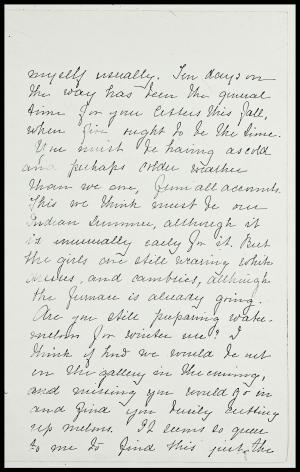 myself usually. Ten days on
the way has been the general
time for your letters this fall,
when five ought to be the time.
You must be having as cold
and perhaps colder weather
than we are, from all accounts.
This we think must be our
Indian Summer, although it
is unusually early for it. But
the girls are still wearing white
dresses, and cambrics, although
the furnace is already going.
Are you still preparing water-
melons for winter use? I
think if Fred we would be out
on the gallery in the evening,
and missing you would go in
and find you busily cutting
up melons. It seems so queer
to me to find this just the